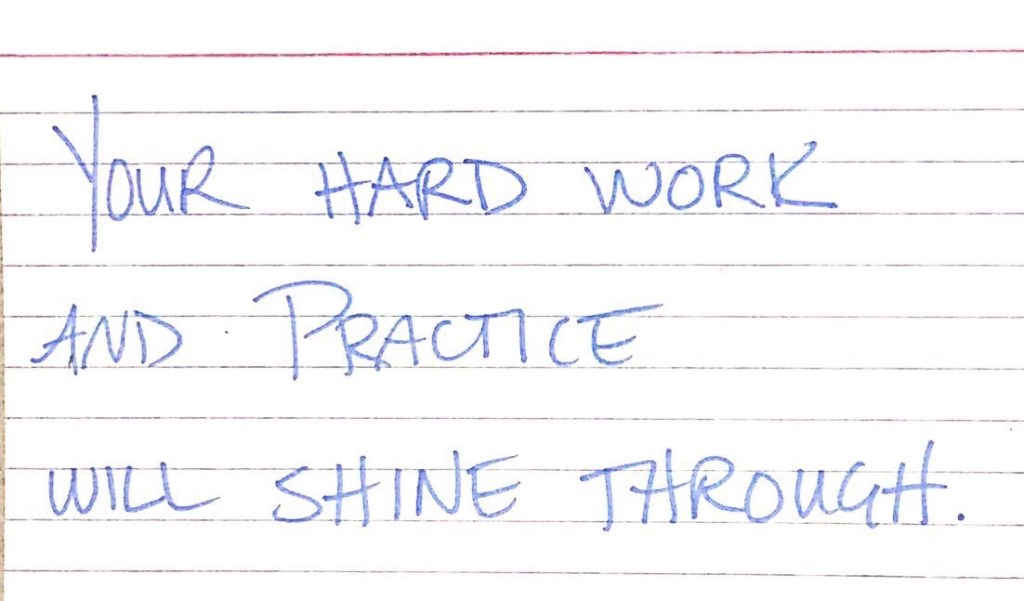 YOUR HARD WORK
AND PRACTICE
WILL SHINE THROUGH.